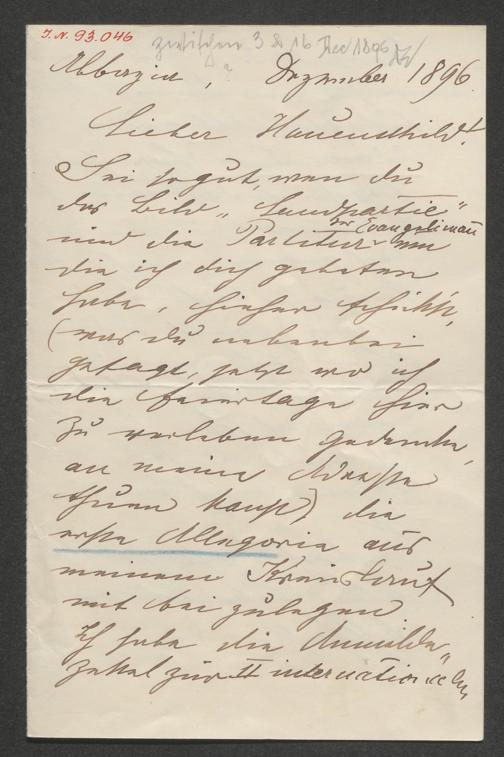 J.N. 93.046
zwischen 3 & 16 Dez 1896
?
Abbazia, Dezember 1896
Lieber Hauenschild!
Sei so gut, wen du
das Bild „Landpartie"
und die Partitur vom Evangelimann um
die ich dich gebeten
habe, hieher schickst,
(was du nebenbei
gesagt, jetzt wo ich
die Feiertage hier
zu verleben gedenke,
an meine Adresse
thuen kanst), die
erste Allegorie aus
meinem Kreislauf
mit bei zulegen.
Ich habe die Anmelde„
zettel zur II internationalen